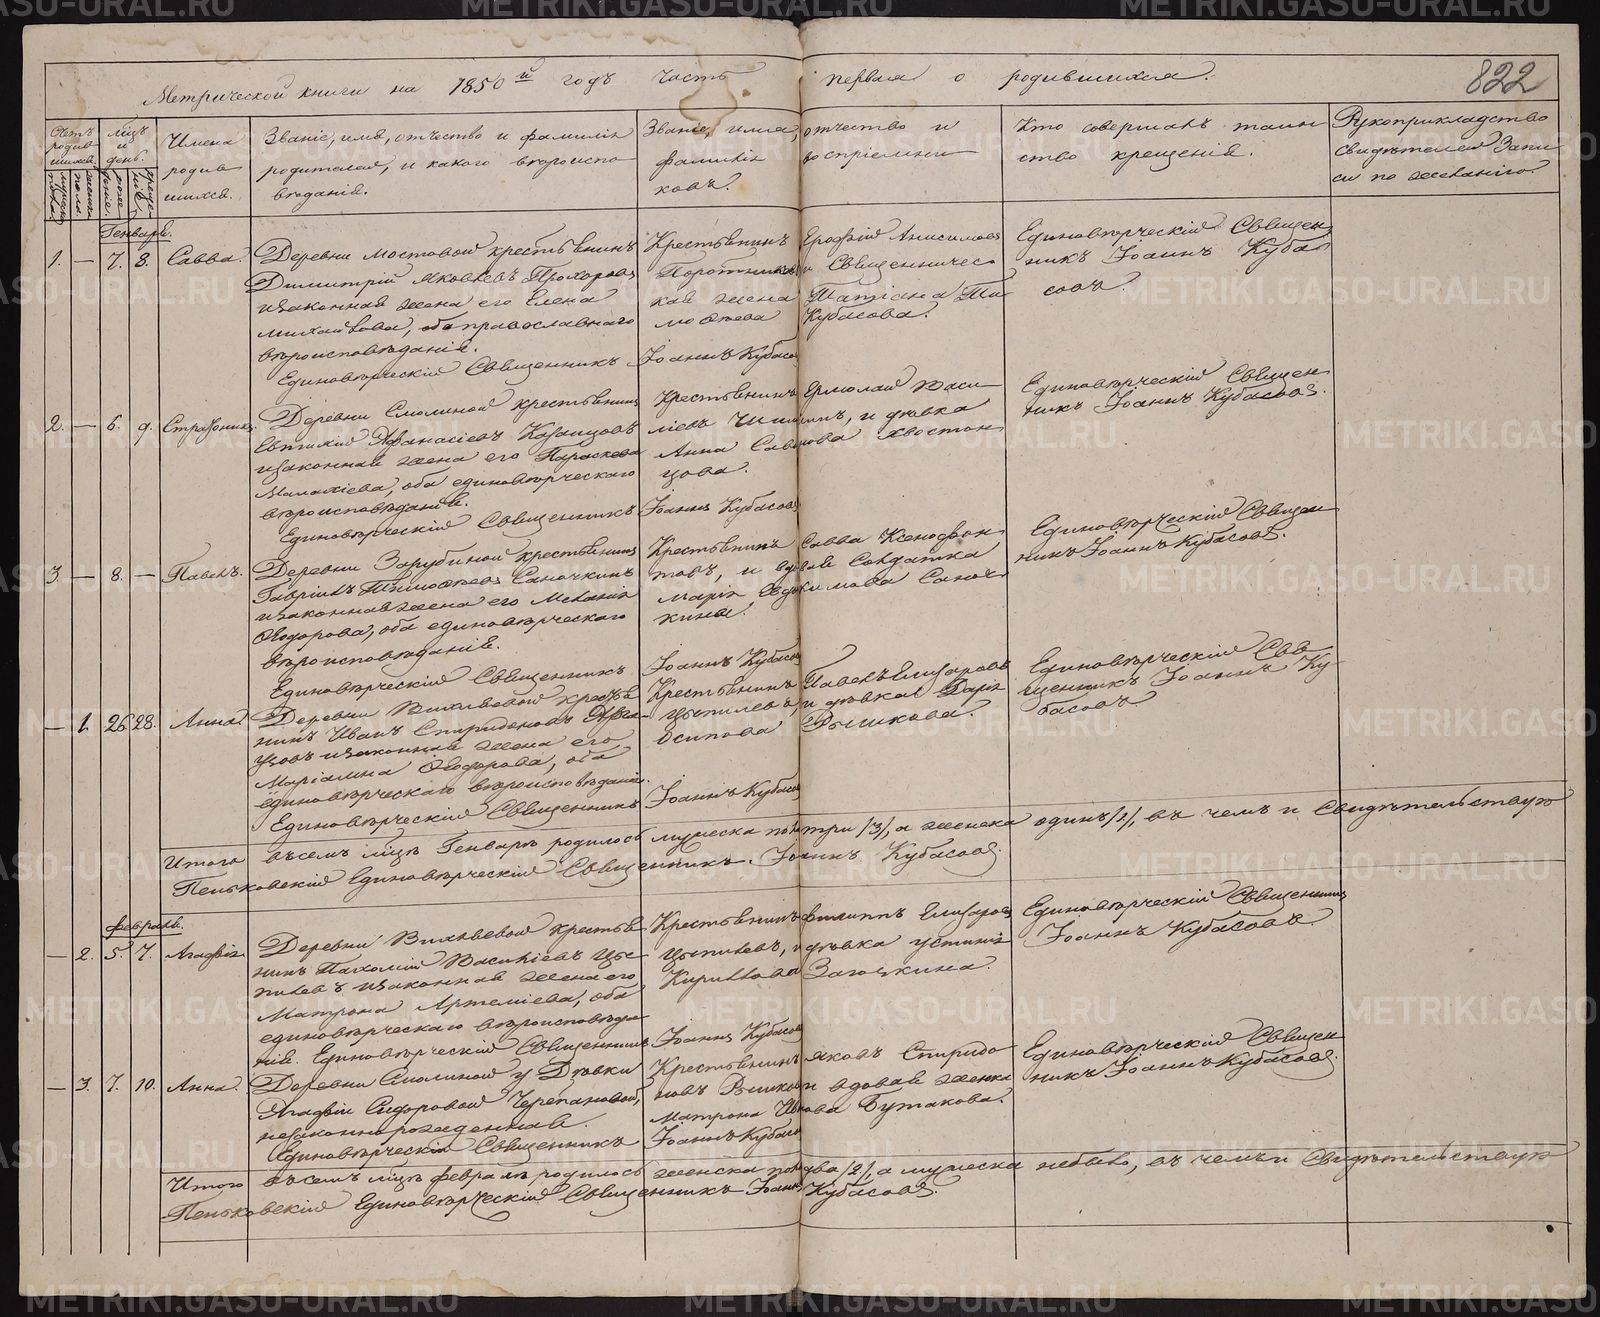 Метрической книги на 1850й годъ часть первая о родившихся.
822
Счетъ родившихся.
мѣсяцъ и день.
Имена родившихся.
Званіе, имя, отчество и фамилія
родителей, и какого вѣроиспо-
вѣданія.
Званіе, имя, отчество и
фамилія воспріемни-
ковъ.
Кто совершалъ таин-
ство крещенія.
Рукоприкладство
свидѣтелей запи-
си по желанію.
Генварь.
1. — 7. 8. Савва.
Деревни Мостовой крестьянинъ
Димитрій Яковлевъ Прохоровъ
и законная жена его Елена
Михайлова, оба православнаго
вѣроисповѣданія.
Единовѣрческій Священникъ Іоаннъ Кубасовъ
Крестьянинъ Ерофѣй Анисимовъ
и Священничес-
кая жена Татіана Ти-
моѳеева Кубасова.
Единовѣрческій Священ-
никъ Іоаннъ Куба-
совъ.
2. — 6. 9.
Деревни Смолиной крестьянинъ
Евтихій Аѳанасіевъ Казанцовъ
и законная жена его Параскева
Малахіева, оба единовѣрческаго
вѣроисповѣданія.
Единовѣрческій Священникъ Іоаннъ Кубасовъ
Крестьянинъ Ермолай Васи-
ліевъ и дѣвка
Анна Саввова Хвостан-
цова.
Единовѣрческій Священ-
никъ Іоаннъ Кубасовъ.
3. — 8. — Павелъ.
Деревни Зарубиной крестьянинъ
Гавріилъ Тимоѳеевъ Саночкинъ
и законная жена его Меланія
Ѳеодорова, оба единовѣрческаго
вѣроисповѣданія.
Единовѣрческій Священникъ Іоаннъ Кубасовъ
Крестьянинъ Савва Ксенофон-
товъ, и вдовая Солдатка
Марія Евдокимова Саноч-
кины.
Единовѣрческій Священ-
никъ Іоаннъ Кубасовъ.
— 1. 26. 28. Анна.
Деревни крестья-
нинъ Иванъ Спиридоновъ
и законная жена его
Маріамна Ѳеодорова, оба
единовѣрческаго вѣроисповѣданія.
Единовѣрческій Священникъ Іоаннъ Кубасовъ
Крестьянинъ Павелъ Елизаровъ
Цыпилевъ, и дѣвка Дарія
Осипова Рычкова.
Единовѣрческій Свя-
щенникъ Іоаннъ Ку-
басовъ
Итого въ семъ мѣсяцѣ Генварѣ родилось мужеска пола три /3/, а женска одинъ /1/, въ чемъ и Свидѣтельствую
Пеньковскій Единовѣрческій Священникъ Іоаннъ Кубасовъ.
Февраль.
— 2. 5. 7. Агафія
Деревни крестья-
нинъ Пахомій Василіевъ Цы-
пилевъ и законная жена его
Матрона Артеміева, оба
единовѣрческаго вѣроисповѣда-
нія. Единовѣрческій Священникъ Іоаннъ Кубасовъ
Крестьянинъ Филиппъ Елизаровъ
Цыпилевъ, и дѣвка Устинія
Кириллова
Единовѣрческій Священникъ
Іоаннъ Кубасовъ.
— 3. 7. 10. Анна.
Деревни Смолиной у Дѣвки
Агафіи Сидоровой Черепановой,
незаконнорожденная.
Единовѣрческій Священникъ Іоаннъ Кубасовъ
Крестьянинъ Яковъ Спиридо-
новъ и вдовая женка
Матрона Бутакова.
Единовѣрческій Священ-
никъ Іоаннъ Кубасовъ.
Итого въ семъ мѣсяцѣ февралѣ родилось женска пола два /2/, а мужеска небыло, въ чемъ и Свидѣтельствую
Пеньковскій Единовѣрческій Священникъ Іоаннъ Кубасовъ.
METRIKI.GASO-URAL.RU